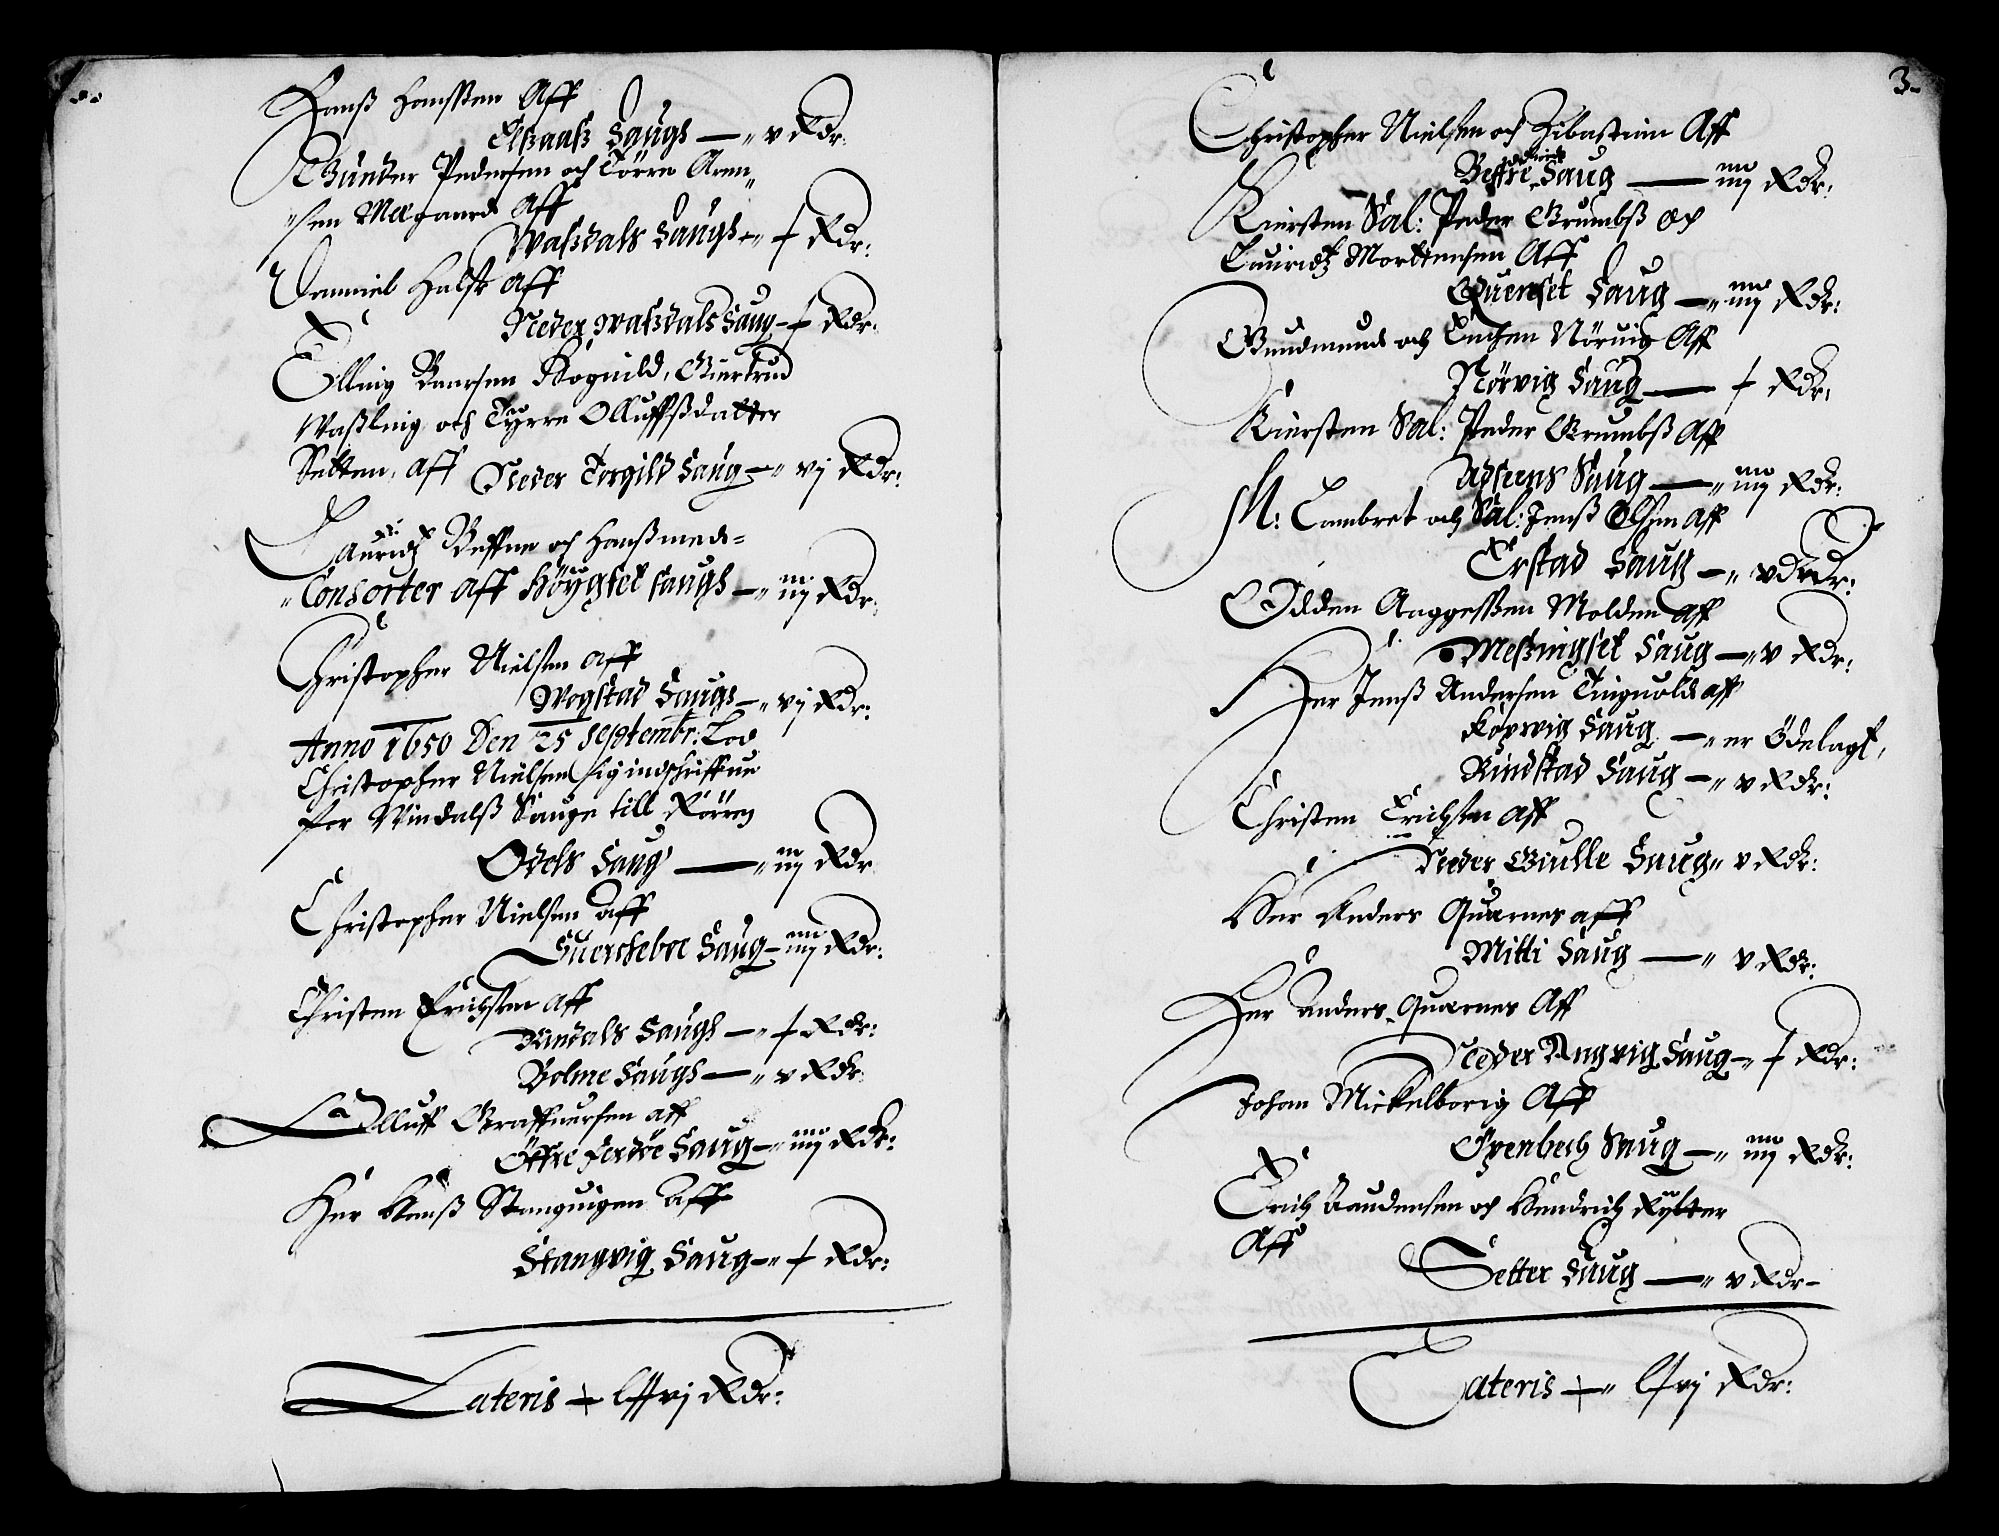 Hanß Hanssen Aff
Elßaaß Saugs — v Rdr:
Gunder Pedersen och Törre Aren„
„sen Mægaard Aff
Waßdals Saugs — x Rdr:
Danniel Halsk aff
Neder Waßdals Saug — x Rdr:
Elling Baarsen Rognild, Giertrud
Waßling och Tyrre Olluffßdatter
Setten, aff Neder Torgild Saug — vj Rdr:
Lauridtz Beffue och Hanß med=
„Consorter aff Höygset saugs — iiij Rdr:
Christopher Nielsen aff
Wogstad Saugs — vj Rdr:
Anno 1650 Den 25 Septembr: Lod
Christopher Nielsen sig indschriffue
for Windalß Sauge till Rörren
Odels Saug — iiij Rdr
Christopher Nielsen aff
Suercheboe Saug — iiij Rdr:
Christen Erichsen aff
Vindals Saugs — x Rdr:
Bolme Saugs — v Rdr
Olluff Graffuersen aff
Öffre Færdøe Saug — iiij Rdr:
Her Hanß Stanguigen aff
Stangvig Saug — x Rdr:
Lateris — lxxvj Rdr:
3.
Christopher Nielsen och Zibastian Aff
Beffre Saug — iiij Rdr:
Kiersten Sal: Peder Grumbß och
Lauridtz Morttensen Aff
Quenset Saug — iiij Rdr:
Gundmund och Enchen Nöruig Aff
Nörvig Saug — x Rdr:
Kiersten Sal: Peder Grumbß Aff
Adseens Saug — iiij Rdr:
M: Lambret och Sal: Jenß Olsen aff
Erstad Saug — v Rdr:
Odden Aaggessen Molden aff
Meßingset Saug — v Rdr:
Her Jenß Andersen Tinguold aff
Korvig Saug — er Ödelagt,
Rindstad Saug — v Rdr:
Christen Erichsen aff
Neder Giulle Saug „ v Rdr:
Her Anders Quarnes aff
Mitti Saug — v Rdr:
Her Anders Quarnes Aff
Neder Angvig Saug — x Rdr:
Johan Mickelborig Aff
Oyenbech Saug — iiij Rdr:
Erich Aaudensen och Hendrich Rytter
Aff
Setter Saug — v Rdr —
Lateris — lxvj Rdr: